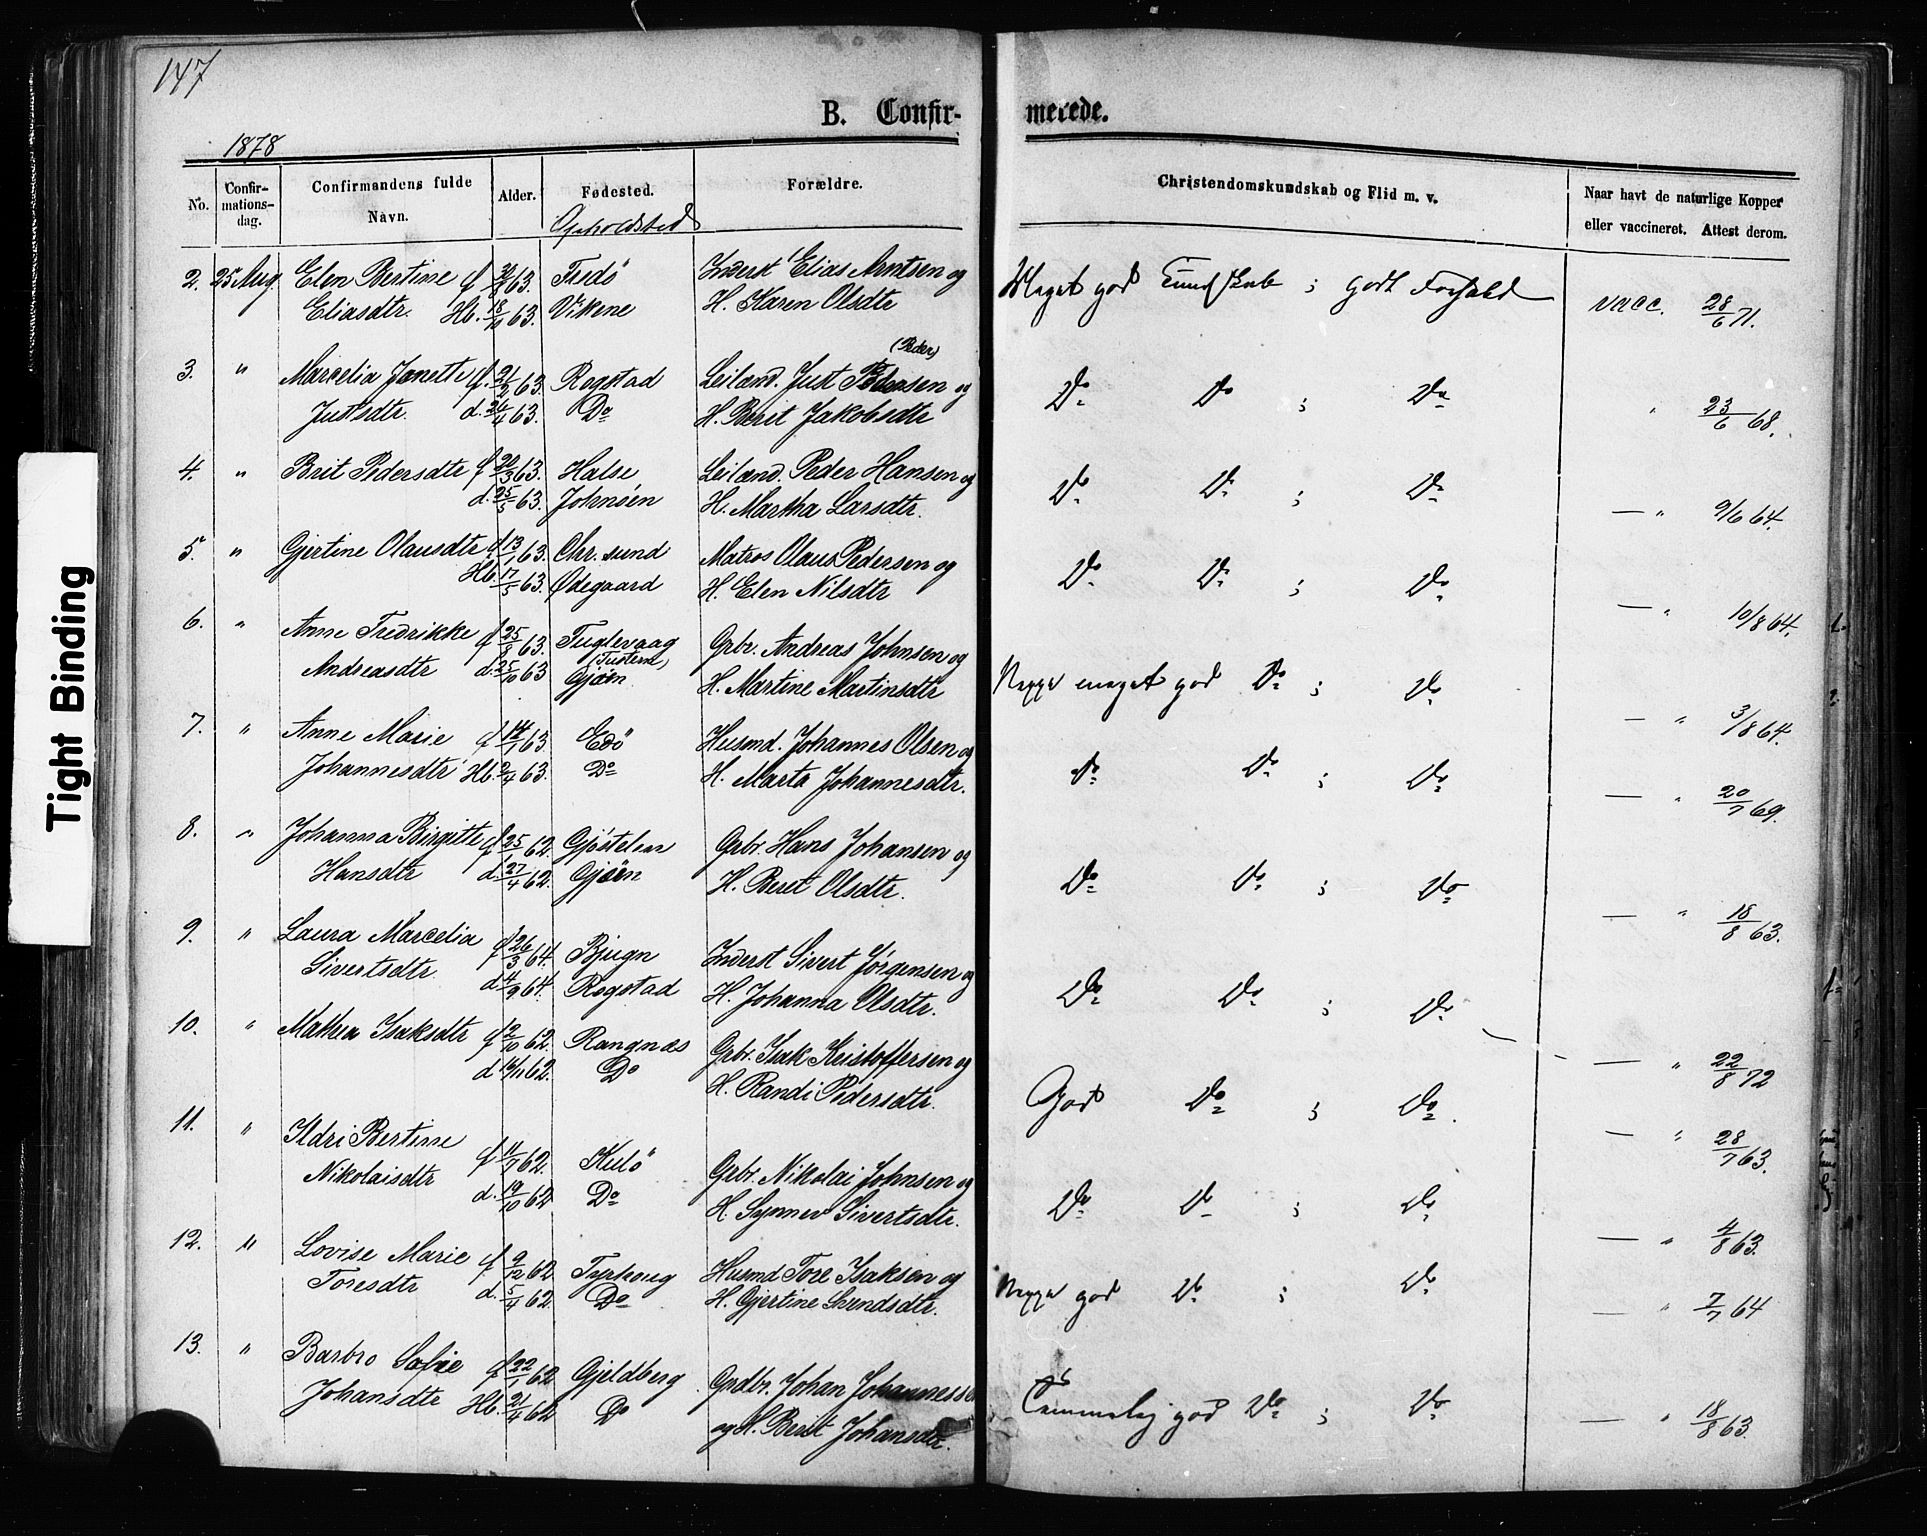 147
B. Confir- merede.
1878
No. Confir-mations-dag. Confirmandens fulde Navn. Alder. Fødested. Forældre. Christendomskundskab og Flid m. v. Naar havt de naturlige Kopper eller vaccineret. Attest derom.
Opholdsted
2. 25 Aug. Elen Bertine f 63. Fredö Inderst Elias Arntsen og Meget god Kundskab ; godt Forhold vacc. 28/6 71.
Eliasdtr. Hb. 18/10 63. Vikene H. Karen Olsdtr
(Peder)
3. " Marcelia Janette f. 21/2 63. Rogstad Leilænd. Just Pedersen og Do Do ; Do " 23/6 68.
Justsdtr. d. 26/4 63. Do H. Berit Jakobsdtr
4. " Brit Pedersdtr f 20/3 63. Halse Leilænd. Peder Hansen og Do Do ; Do — " 9/6 64.
d. 25/5 63. Johnsöen H. Martha Larsdtr.
5. " Gjertine Olausdtr f 13/1 63. Chr. sund Matros Olaus Pedersen og Do Do ; Do — " 10/8 64.
Hb. 17/5 63. Ødegaard H. Elen Nilsdtr
6. " Anne Fredrikke f 25/8 63. Fuglevaag Grbr. Andreas Johnsen og Noget meget god Do ; Do — " 3/8 64.
Andreasdtr d. 25/10 63 (Tustern) Gjøen H. Martine Martinsdtr
7. " Anne Marie f 14/1 63. Edö Husmd. Johannes Olsen og Do Do ; Do — " 20/7 69.
Johannesdtr Hb. 2/4 63. Do H. Marta Johannesdtr.
8. " Johanna Birgitte f 25 62. Gjøstelen Grbr. Hans Johansen og Do Do ; Do — " 18/8 63.
Hansdtr d. 27/4 62. Gjøen H. Beret Olsdtr.
9. " Laura Marcelia f 26/3 64. Bjugn Inderst Sivert Jørgensen og Do Do ; Do — " 22/8 72
Sivertsdtr. d. 4/9 64. Rogstad H. Johanna Olsdtr.
10. " Mathea Isaksdtr f 2/10 62. Rangnæs Grbr. Isak Kristoffersen og God Do ; Do. — " 28/7 63.
d 16/11 62. Do H. Randi Pedersdtr.
11. " Ildri Bertine f 11/7 62. Kulö Grbr. Nikolai Johnsen og Do Do ; Do — " 4/8 63.
Nikolaisdtr d. 19/10 62 Do H. Synnev Sivertsdtr.
12. " Lovise Marie f 9/12 62 Tyrhoug Husmd Tore Isaksen og god Do ; Do — " 7/7 64
Toresdtr d. 5/4 62. Do H. Gjertine Svendsdtr.
13. " Barbro Sofie f 22/1 62 Gjeldberg Grdbr. Johan Johannessen Temmelig god Do ; Do — " 18/8 63.
Johansdtr Hb. 21/4 62 Do og H. Berit Johansdtr.
Tight Binding